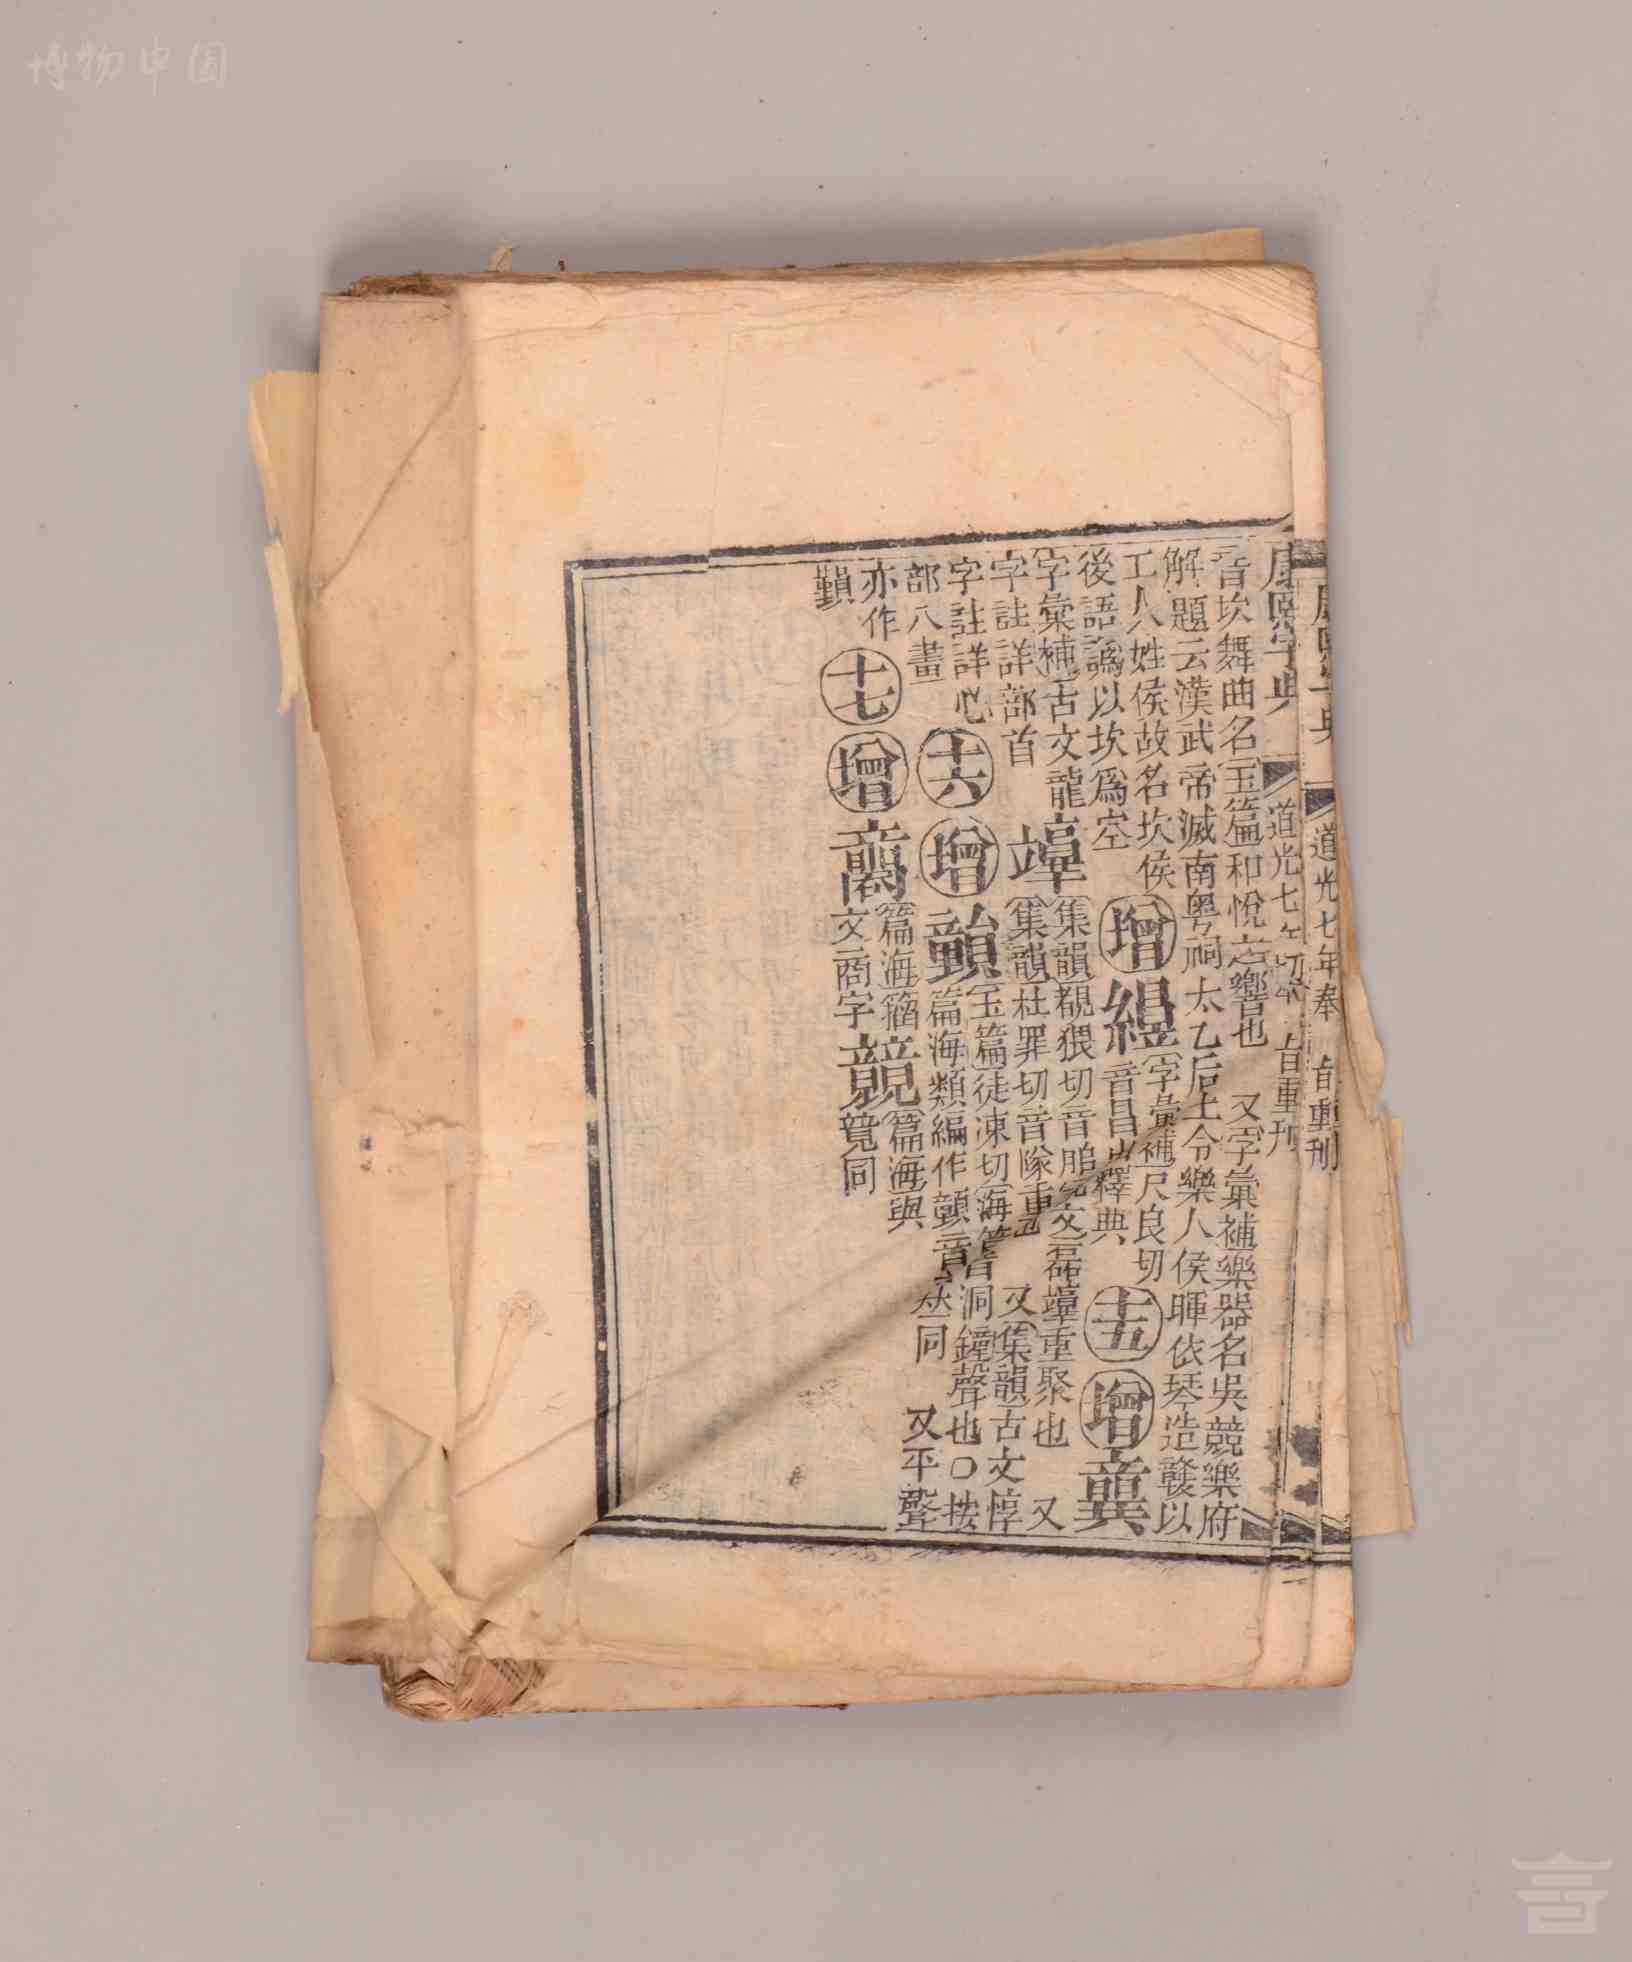 博物中国
康熙字典 道光七年奉 旨重刊
康熙字典 道光七年 旨重刊
音坎舞曲名玉篇和悅之響也 又字彙補樂器名吳競樂府
解題云漢武帝滅南粤祠太乙后土令樂人侯暉依琴造竷以
工人姓侯故名坎侯
後語譌以坎爲空
增
緽
字彙補尺良切
音昌出釋典
十五
增
字彙補古文龍
字註詳部首
集韻覩猥切音
磊 重聚也 又
集韻杜罪切音隊重
又集韻古文惇
字註詳心
部八畫
十六
增
玉篇徒凍切海篇音洞鐘聲也〇按
篇海類編作 音 同 又平聲
亦作
十七
增
篇海籀
文商字
競
篇海與
競同